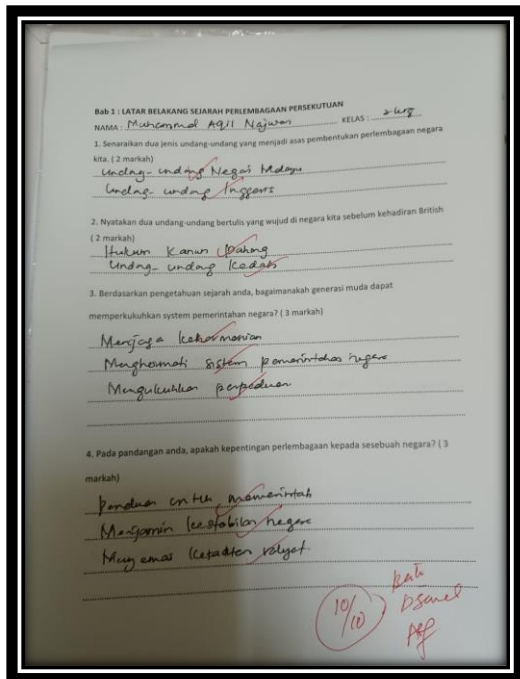 Bab 1 : LATAR BELAKANG SEJARAH PERLEMBAGAAN PERSEKUTUAN
NAMA : Muhammad Aqil Najwan KELAS :
1. Senaraikan dua jenis undang-undang yang menjadi asas pembentukan perlembagaan negara
kita. ( 2 markah)
Undang-undang Negeri Melayu
Undang-undang Inggeris
2. Nyatakan dua undang-undang bertulis yang wujud di negara kita sebelum kehadiran British
( 2 markah)
Hukum Kanun Pahang
Undang-undang Kedah
3. Berdasarkan pengetahuan sejarah anda, bagaimanakah generasi muda dapat
memperkukuhkan system pemerintahan negara? ( 3 markah)
Menjaga keharmonian
Menghormati sistem pemerintahan negara
Mengukuhkan perpaduan
4. Pada pandangan anda, apakah kepentingan perlembagaan kepada sesebuah negara? ( 3
markah)
Panduan untuk memerintah
Menjamin kestabilan negara
rakyat
10/10